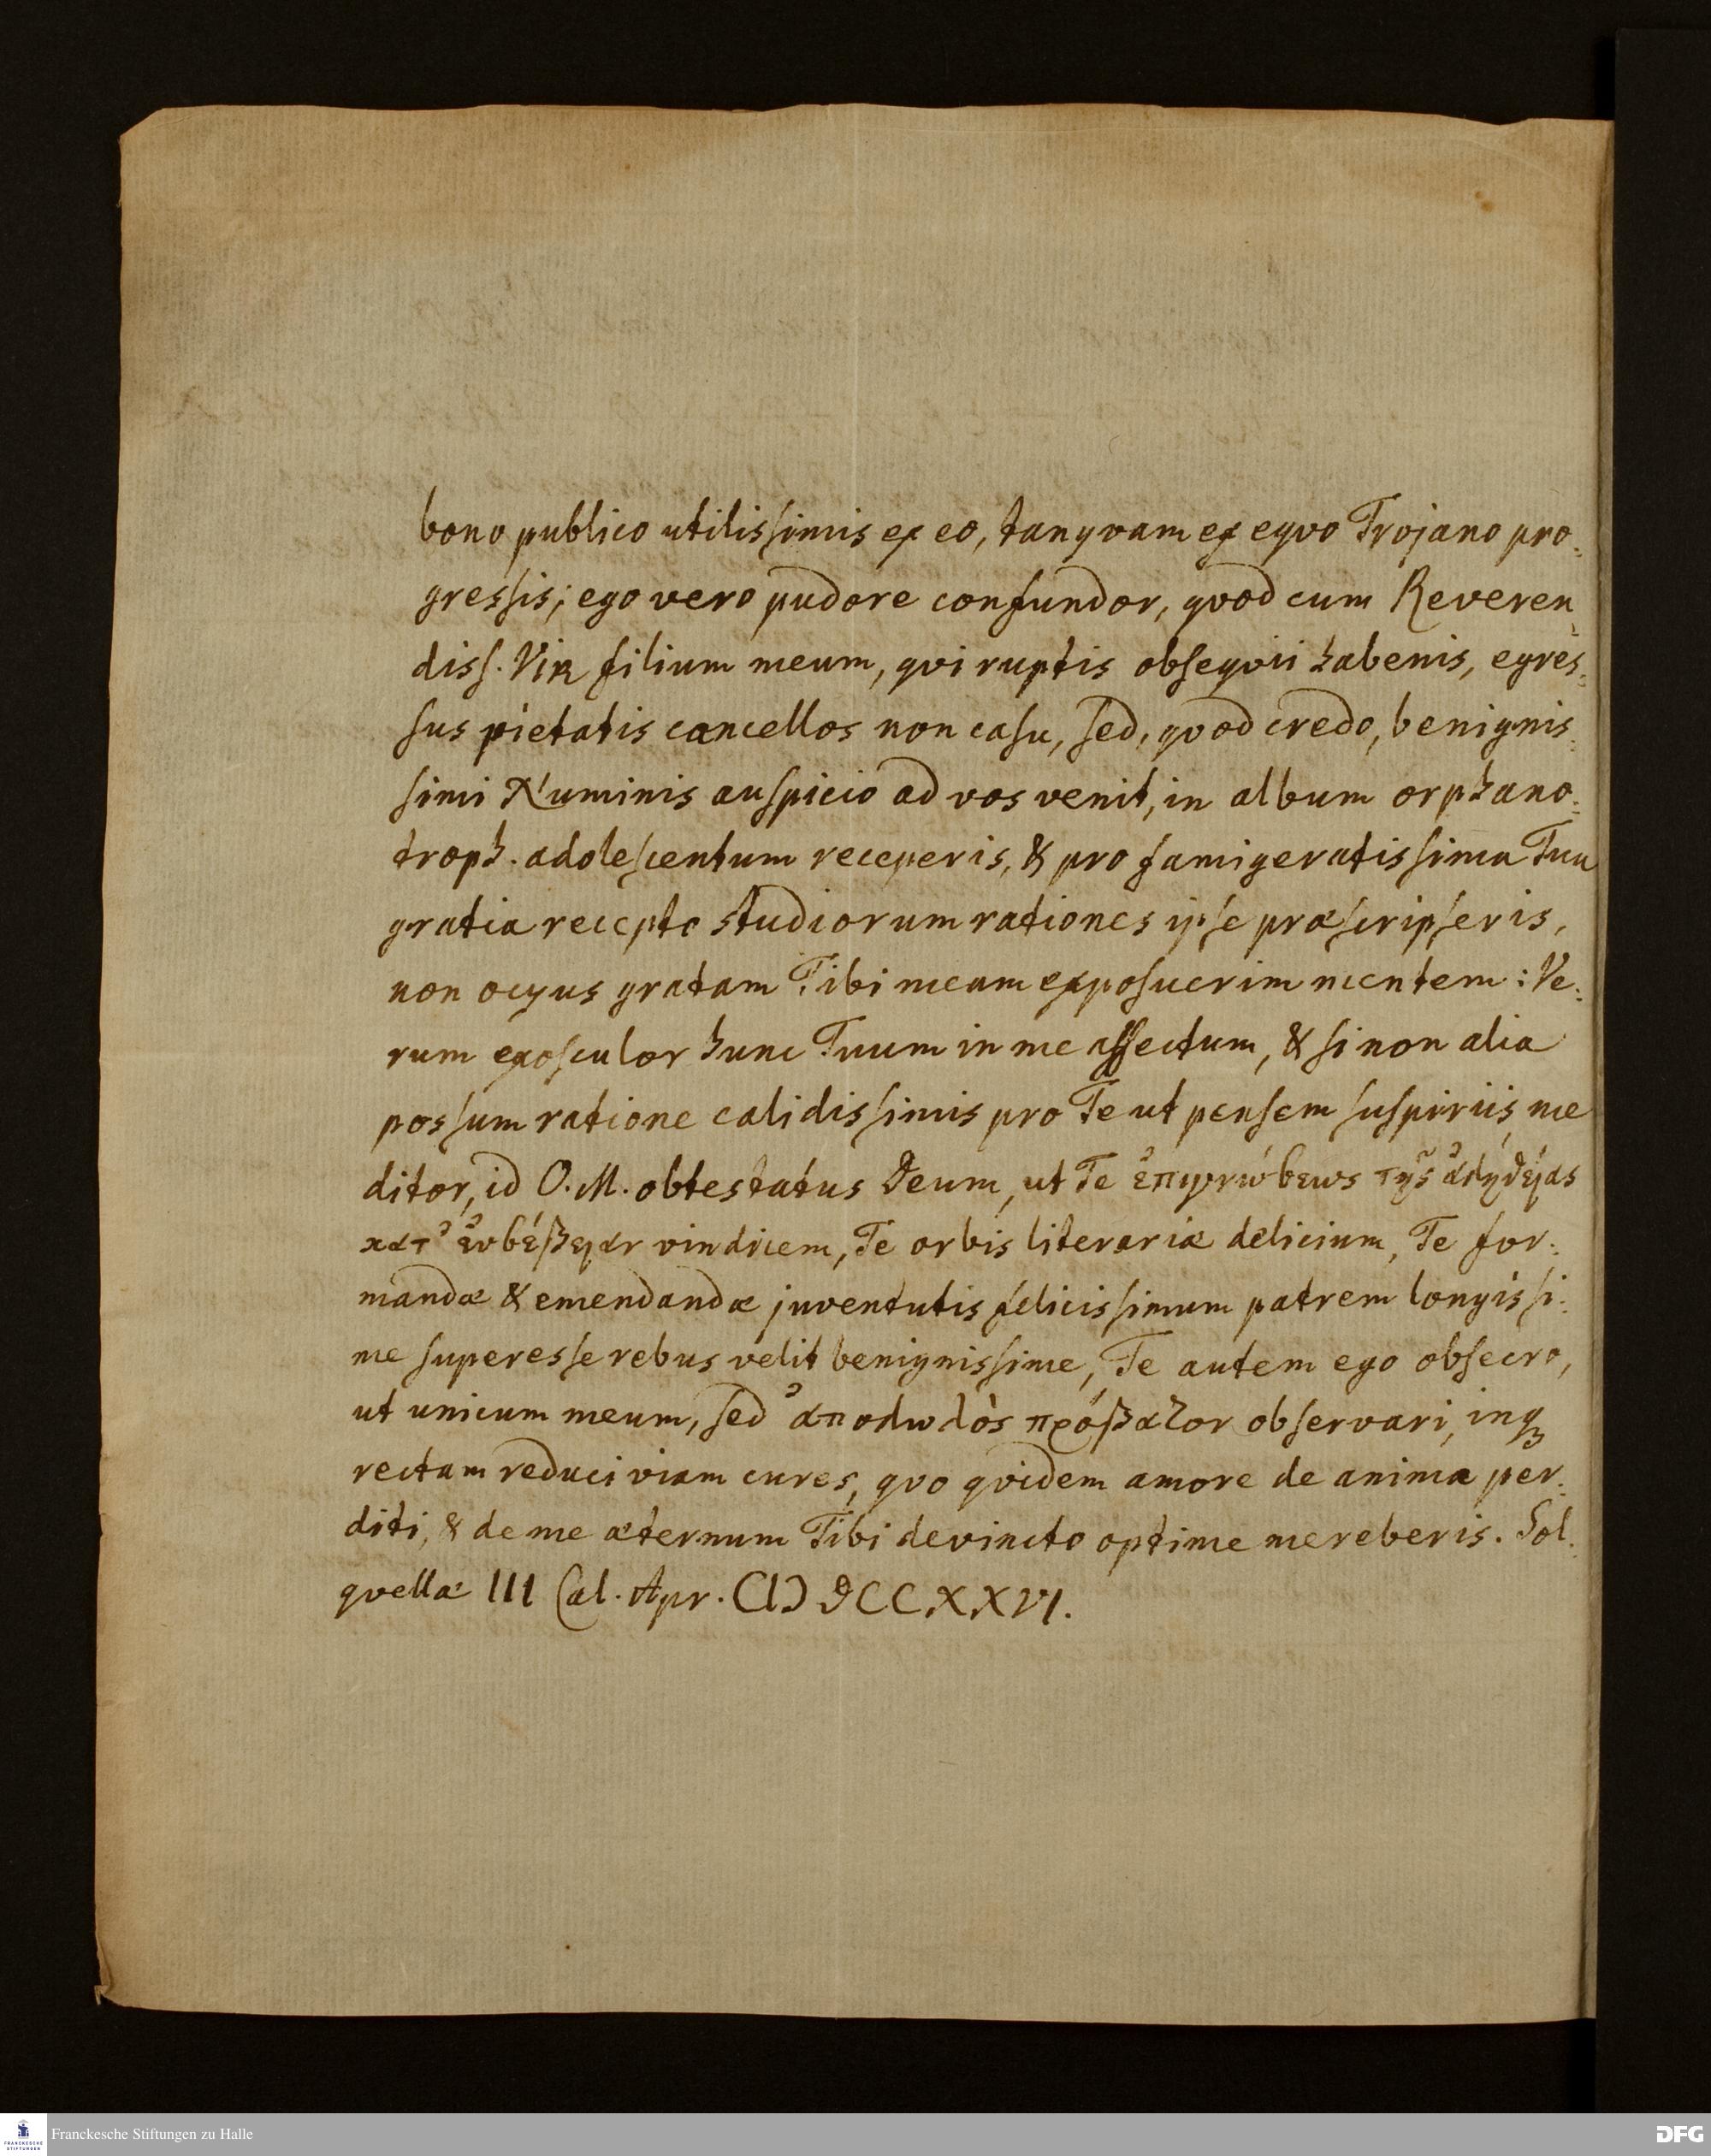 bono publico utilisſimis ex eo, tanqvam ex eqvo Trojano pro⸗
gresſis; ego vero pudore confundor, qvod cum Reveren⸗
disſ. Vir filium meum, qvi ruptis obſeqvii habenis, egres⸗
ſus pietatis cancellos non caſu, ſed, qvod credo, benignis⸗
ſimi Numinis auſpicio ad vos venit, in album orphano⸗
troph. adoleſcentum receperis, & pro famigeratisſima Tua
gratia recepto studiorum rationes ipſe præſcripſeris,
non ocyus gratam Tibi meam expoſuerim mentem: Ve⸗
rum exoſculor hunc Tuum in me affectum, & ſi non alia
posſum ratione calidisſimis pro Te ut penſem ſuſpiriis me
ditor, id O. M. obtestatus Deum, ut Te ἐπιγνώσεως τῆς ἀληθείας
κατ᾽ ἐυσέβειαν vindicem, Te orbis literariæ delicium, Te for⸗
mandæ & emendandæ juventutis felicisſimum patrem longisſi⸗
me ſuperesſe rebus velit benignisſime, Te autem ego obſecro,
ut unicum meum, ſed ἀπολωλὸς πρόβατον obſervari, inqꝫ
rectam reduci viam cures, qvo qvidem amore de anima per⸗
diti, & de me æternum Tibi devincto optime mereberis. Sol⸗
qvellæ III Cal. Apr. CIƆ DCCXXVI.
Franckesche Stiftungen zu Halle
FRANCKESCHE
STIFTUNGEN
DFG